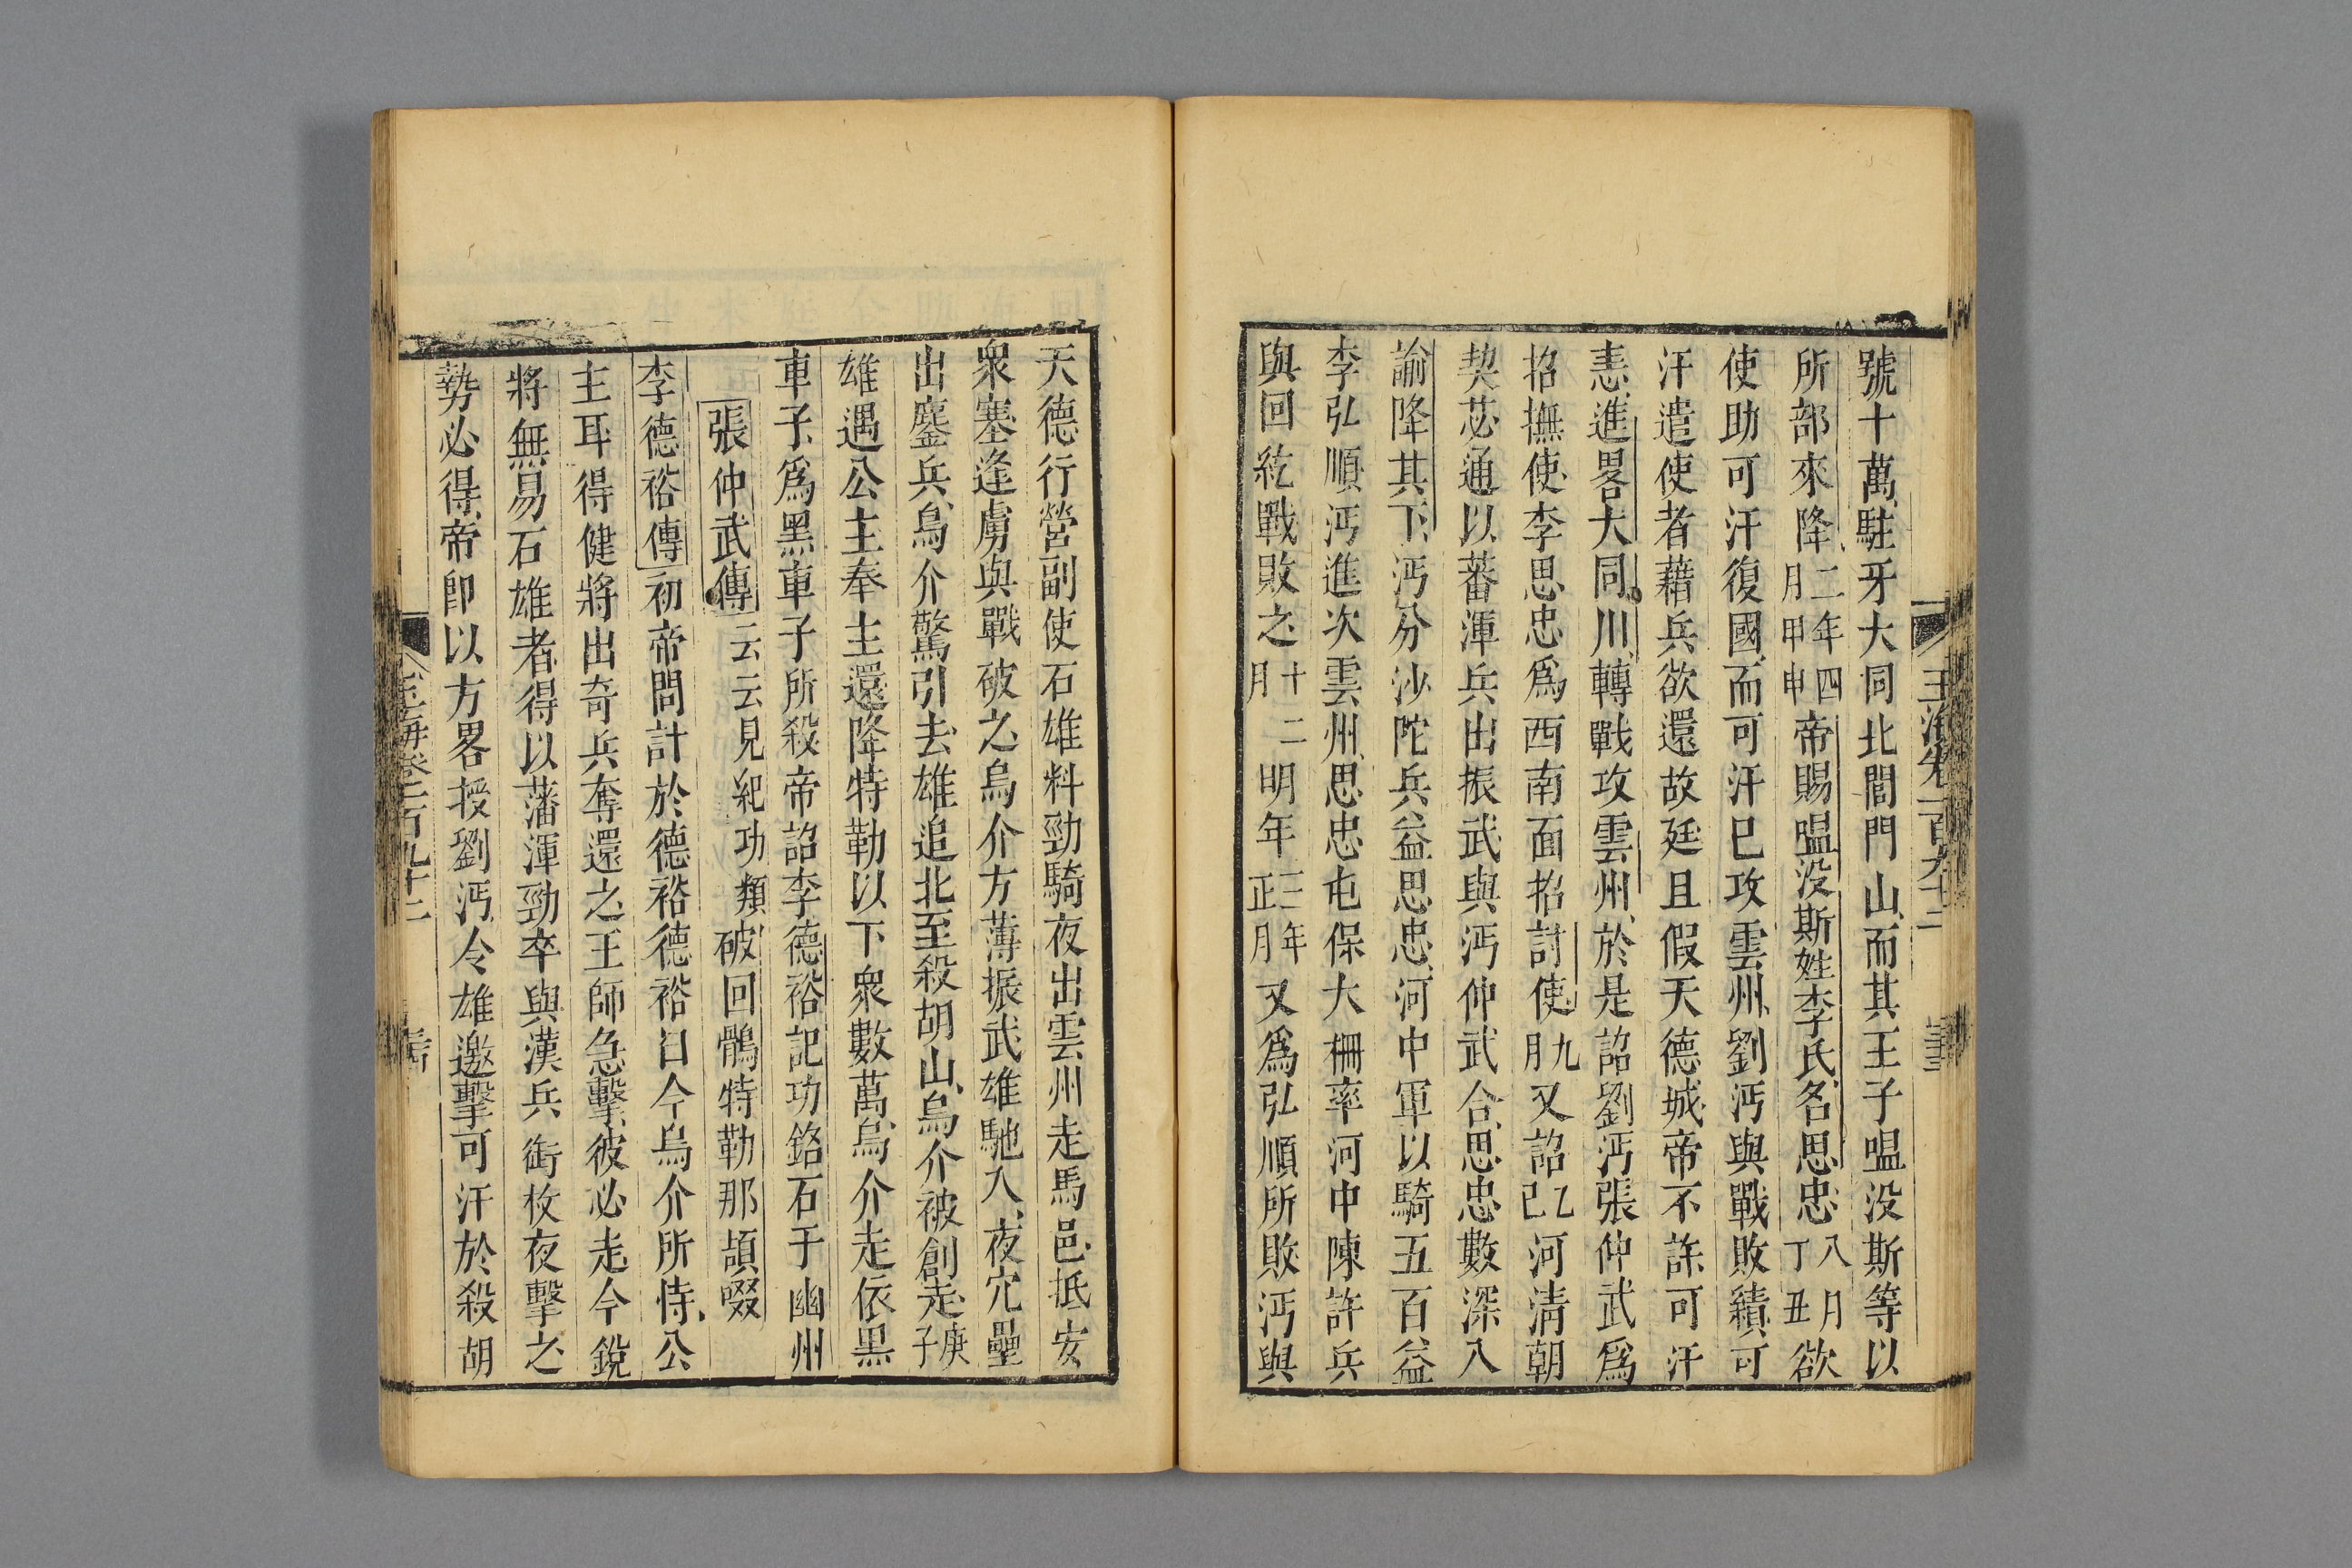 號十萬駐牙大同北閭門山而其王子嗢没斯等以
所部來降二年四月甲申帝賜嗢没斯姓李氏名思忠八月丁丑欲
使助可汗復國而可汗已攻雲州劉沔與戰敗績可
汗遣使者藉兵欲還故廷且假天德城帝不許可汗
恚進畧大同川轉戰攻雲州於是詔劉沔張仲武爲
招撫使李思忠爲西南面招討使九月又詔乙巳河淸朝
契苾通以蕃渾兵出振武與沔仲武合思忠數深入
諭降其下沔分沙陀兵益思忠河中軍以騎五百益
李弘順沔進次雲州思忠屯保大柵率河中陳許兵
與回紇戰敗之十二月明年三年正月又爲弘順所敗沔與
天德行營副使石雄料勁騎夜出雲州走馬邑抵安
衆塞逢虜與戰破之烏介方薄振武雄馳入夜穴壘
出鏖兵烏介驚引去雄追北至殺胡山烏介被創走庚子
雄遇公主奉主還降特勒以下衆數萬烏介走依黑
車子爲黑車子所殺帝詔李德裕記功銘石于幽州
張仲武傳云云見紀功類破回鶻特勒那頡啜
李德裕傳初帝問計於德裕德裕曰今烏介所恃公
主耳得健將出奇兵奪還之王師急擊彼必走今銳
將無易石雄者得以藩渾勁卒與漢兵銜枚夜擊之
勢必得帝卽以方畧授劉沔令雄邀擊可汗於殺胡